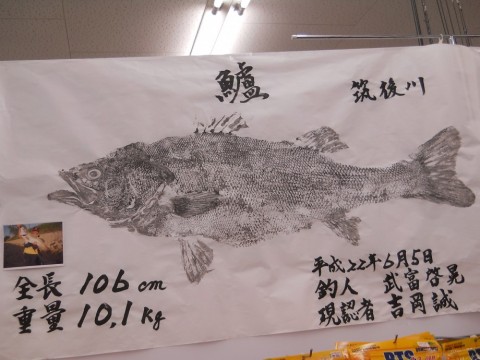 鱸
筑後川
全長 106 cm
重量 10,1 kg
平成22年6月5日
釣人 武富啓晃
現認者 吉岡誠